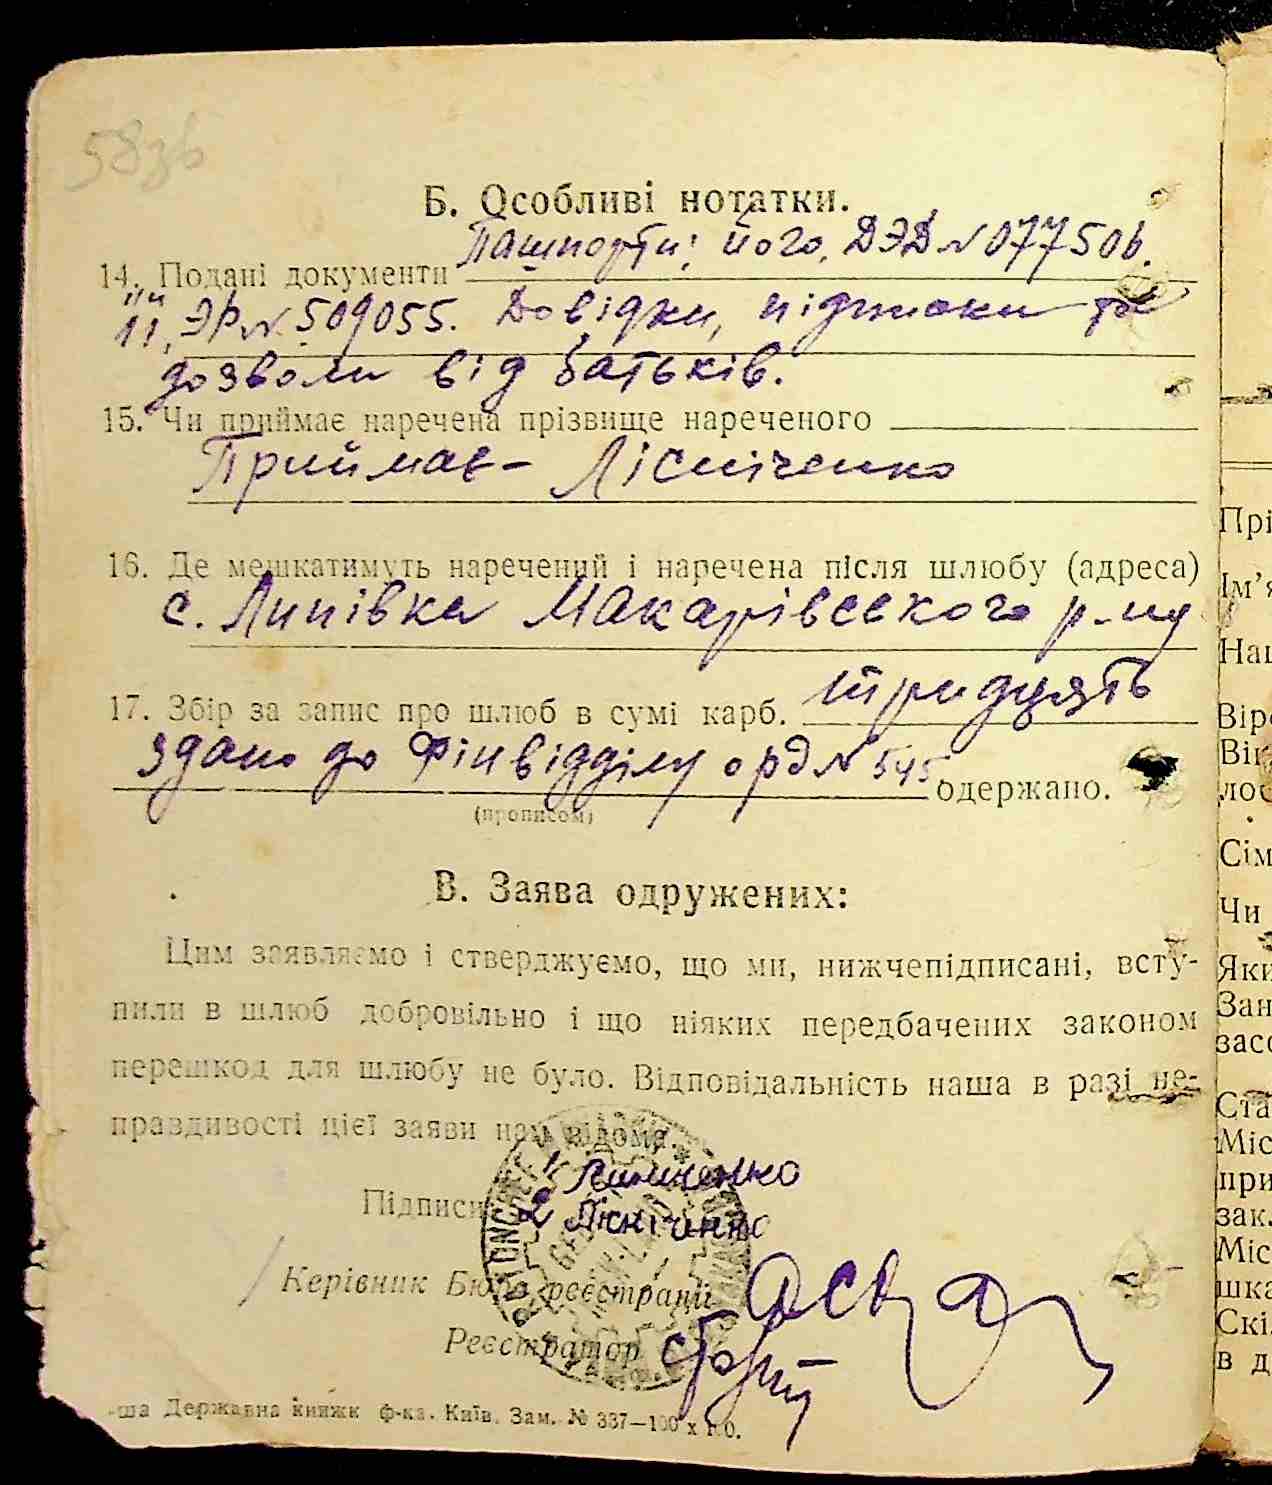 58зв
Б. Особливі нотатки.
14. Подані документи Пашпорти: його, ДЭД № 077506.
її, ЭР № 509055. Довідки, підписки та
дозволи від батьків.
15. Чи приймає наречена прізвище нареченого
Приймає – Лісніченко
16. Де мешкатимуть наречений і наречена після шлюбу (адреса)
с. Липівка Макарівського р-ну
17. Збір за запис про шлюб в сумі карб. тридцять
здано до Фінвідділу орд № 545 одержано.
(прописом)
В. Заява одружених:
Цим заявляємо і стверджуємо, що ми, нижчепідписані, всту-
пили в шлюб добровільно і що ніяких передбачених законом
перешкод для шлюбу не було. Відповідальність наша в разі не-
правдивості цієї заяви нам відома.
1
Підписи 2 Лісніченко
Керівник Бюро реєстрації
Реєстратор
ша Державна книжк ф-ка. Київ. Зам. № 337—100 х
Прі
Ім’я
Нац
Віро
Вік
лос
Сім
Чи
Яки
Зан
засо
Ста
Міс
при
зак.
Міс
шка
Скі
в д